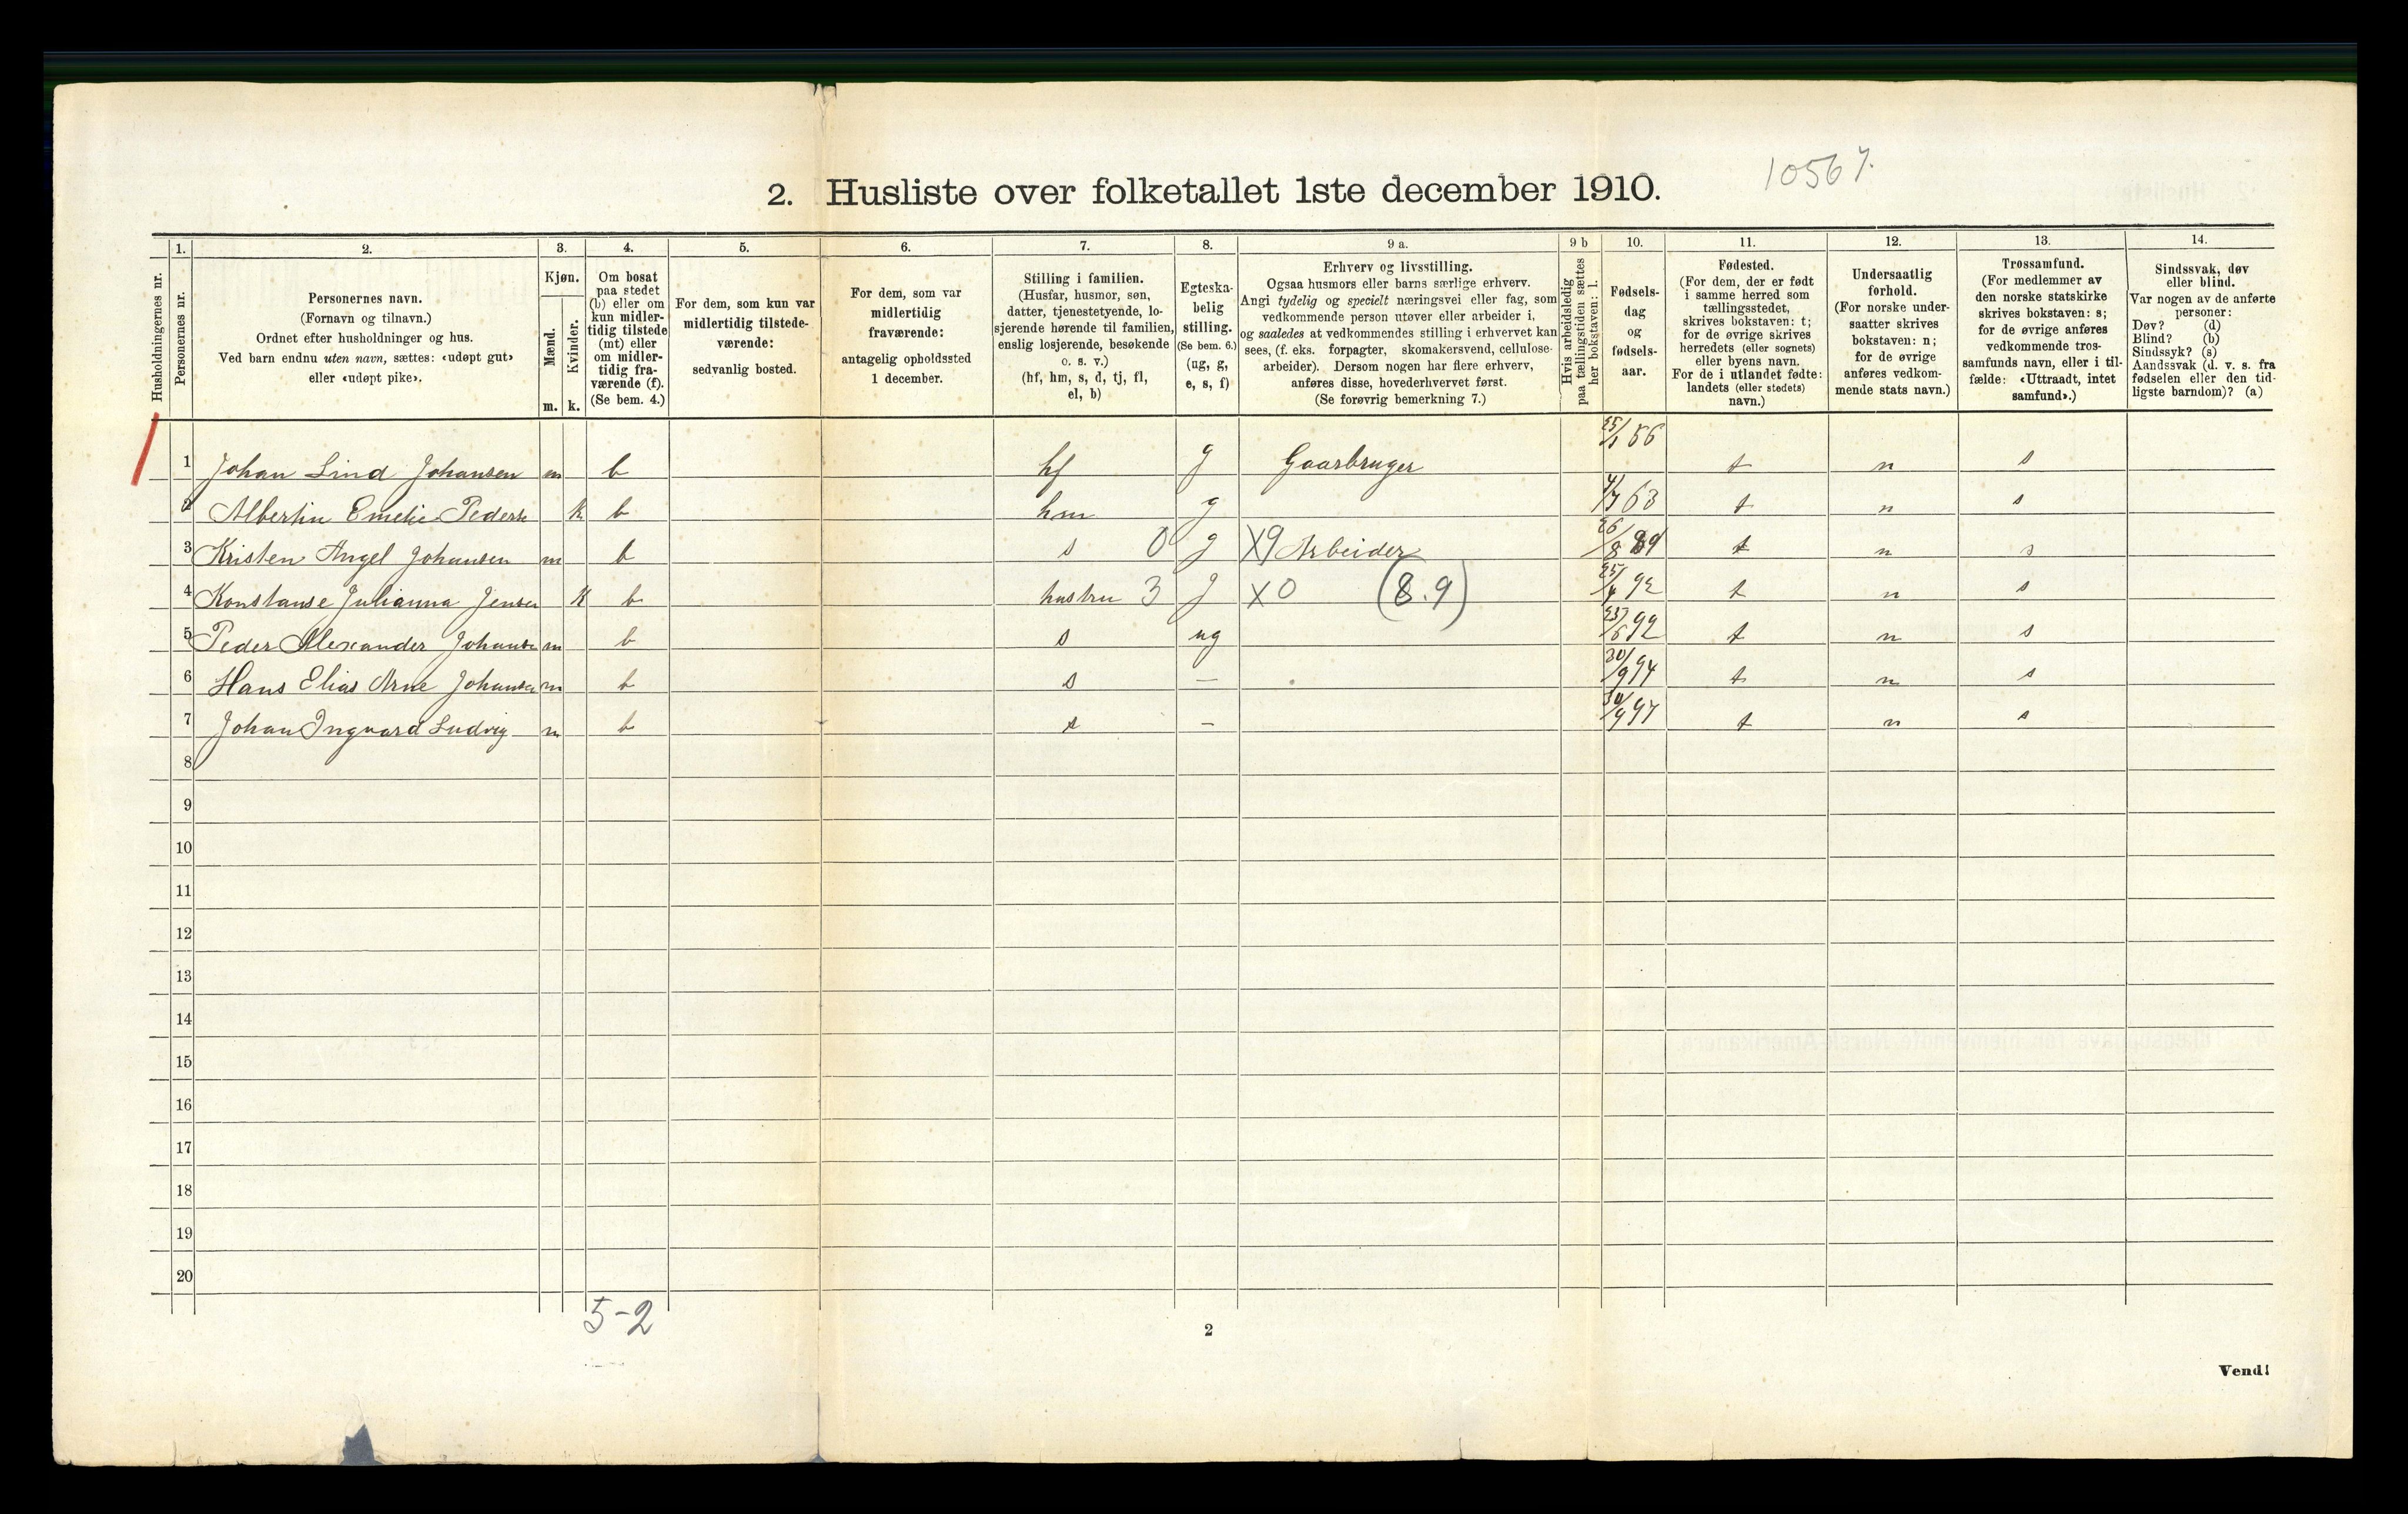 10567.
2. Husliste over folketallet 1ste december 1910.
Husholdningernes nr.
1.
Personernes nr.
2.
Personernes navn.
(Fornavn og tilnavn.)
Ordnet efter husholdninger og hus.
Ved barn endnu uten navn, sættes: «udøpt gut»
eller «udøpt pike».
3.
Kjøn.
Mænd.
Kvinder.
m. k.
4.
Om bosat
paa stedet
(b) eller om
kun midler-
tidig tilstede
(mt) eller
om midler-
tidig fra-
værende (f).
(Se bem. 4.)
5.
For dem, som kun var
midlertidig tilstede-
værende:
sedvanlig bosted.
6.
For dem, som var
midlertidig
fraværende:
antagelig opholdssted
1 december.
7.
Stilling i familien.
(Husfar, husmor, søn,
datter, tjenestetyende, lo-
sjerende hørende til familien,
enslig losjerende, besøkende
o. s. v.)
(hf, hm, s, d, tj, fl,
el, b)
8.
Egteska-
belig
stilling.
(Se bem. 6.)
(ug, g,
e, s, f)
9 a.
Erhverv og livsstilling.
Ogsaa husmors eller barns særlige erhverv.
Angi tydelig og specielt næringsvei eller fag, som
vedkommende person utøver eller arbeider i,
og saaledes at vedkommendes stilling i erhvervet kan
sees, (f. eks. forpagter, skomakersvend, cellulose-
arbeider). Dersom nogen har flere erhverv,
anføres disse, hovederhvervet først.
(Se forøvrig bemerkning 7.)
9 b
Hvis arbeidsledig
paa tællingstiden sættes
her bokstaven: l.
10.
Fødsels-
dag
og
fødsels-
aar.
11.
Fødested.
(For dem, der er født
i samme herred som
tællingsstedet,
skrives bokstaven: t;
for de øvrige skrives
herredets (eller sognets)
eller byens navn.
For de i utlandet fødte:
landets (eller stedets)
navn.)
12.
Undersaatlig
forhold.
(For norske under-
saatter skrives
bokstaven: n;
for de øvrige
anføres vedkom-
mende stats navn.)
13.
Trossamfund.
(For medlemmer av
den norske statskirke
skrives bokstaven: s;
for de øvrige anføres
vedkommende tros-
samfunds navn, eller i til-
fælde: «Uttraadt, intet
samfund».)
14.
Sindssvak, døv
eller blind.
Var nogen av de anførte
personer:
Døv? (d)
Blind? (b)
Sindssyk? (s)
Aandssvak (d. v. s. fra
fødselen eller den tid-
ligste barndom)? (a)
1 Johan Lind Johansen m b hf g Gaarbruger 25/1 56 t n s
2 Albertin Emelie Peders k b hm g 4/7 63 t n s
3 Kristen Angel Johansen m b s 0 g X9 Arbeider 26/8 89 t n s
4 Konstanse Julianna Jensen k b hustru 3 g X0 (8.9) 25/4 92 t n s
5 Peder Alexander Johansen m b s ug 23/6 92 t n s
6 Hans Elias Arne Johansen m b s — 30/9 94 t n s
7 Johan Ingvard Ludvig m b s — 30/9 97 t n s
8
9
10
11
12
13
14
15
16
17
18
19
20
5-2
2
Vend!